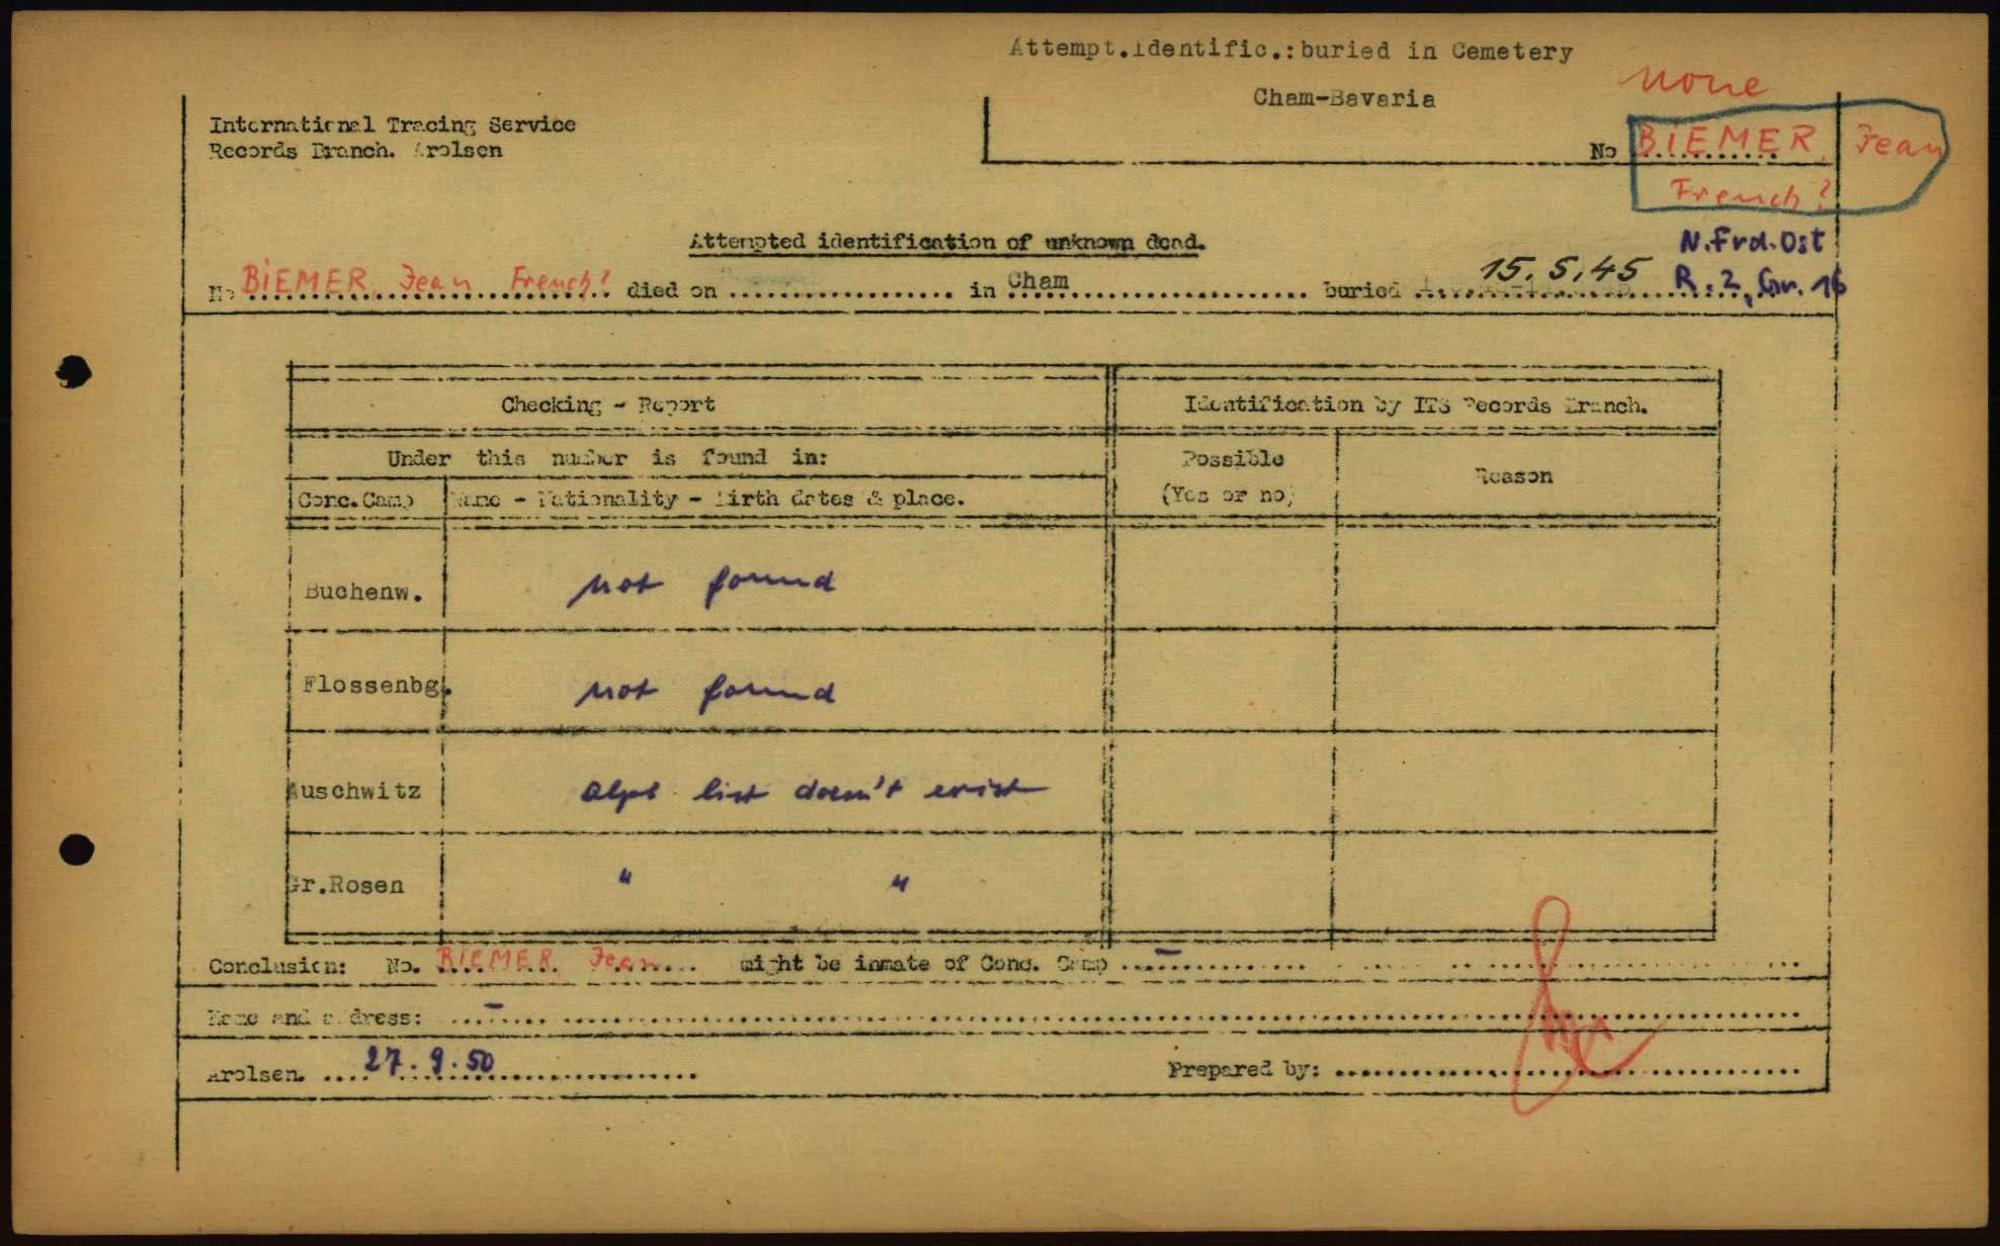 Attempt.Identific.: buried in Cemetery
Cham-Bavaria
none
International Tracing Service
Records Branch. Arolsen
No BIEMER, Jean
French?
Attempted identification of unknown dead.
N.Frd.Ost
No BIEMER, Jean French? died on .................. in Cham .................. buried 15.5.45 R.2, Gr. 16
Checking - Report
Identification by ITS Records Branch.
Under this number is found in:
Possible
(Yes or no)
Reason
Conc.Camp
Name - Nationality - Birth dates & place.
Buchenw. not found
Flossenbg. not found
Auschwitz alph list doesn't exist
Gr.Rosen " "
Conclusion: No. BIEMER, Jean might be inmate of Conc. Camp –
Name and address: –
Arolsen. 27.9.50
Prepared by: